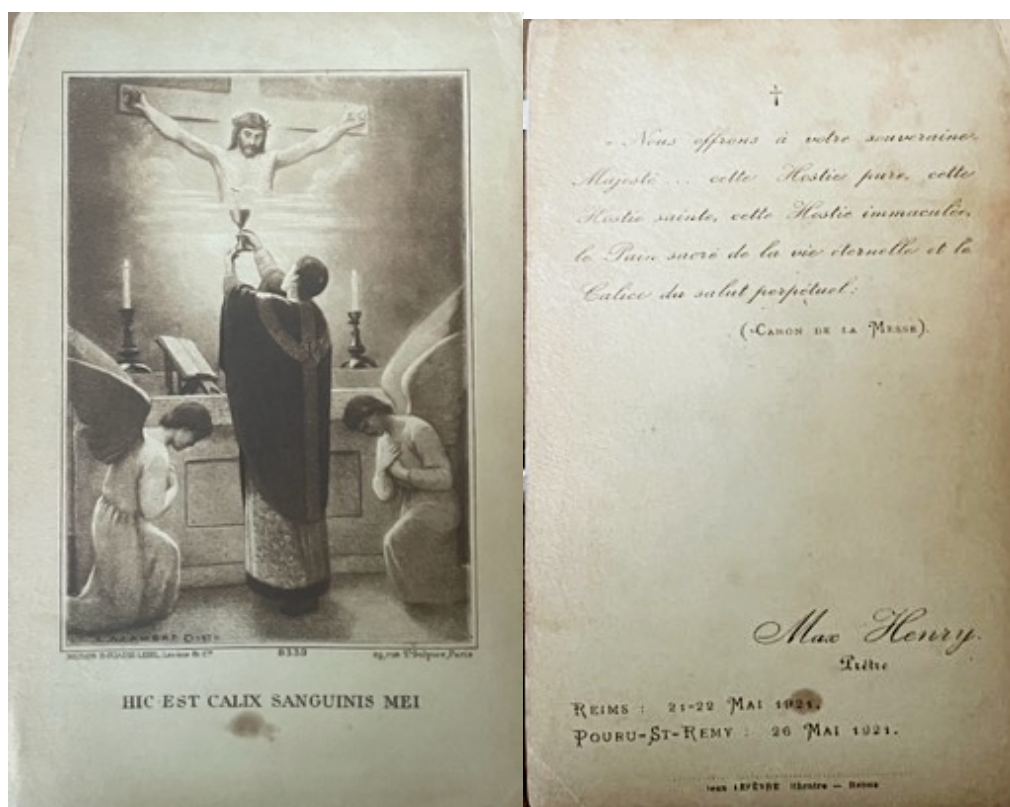 HIC EST CALIX SANGUINIS MEI
8338
29, rue St Sulpice, Paris
« Nous offrons à votre souveraine
Majesté ... cette Hostie pure, cette
Hostie sainte, cette Hostie immaculée,
le Pain sacré de la vie éternelle et le
Calice du salut perpétuel.
(Canon de la Messe).
Max Henry.
Prêtre
Reims : 21-22 Mai 1921.
Pouru-St-Remy : 26 Mai 1921.
LEFÈVRE libraire — Reims